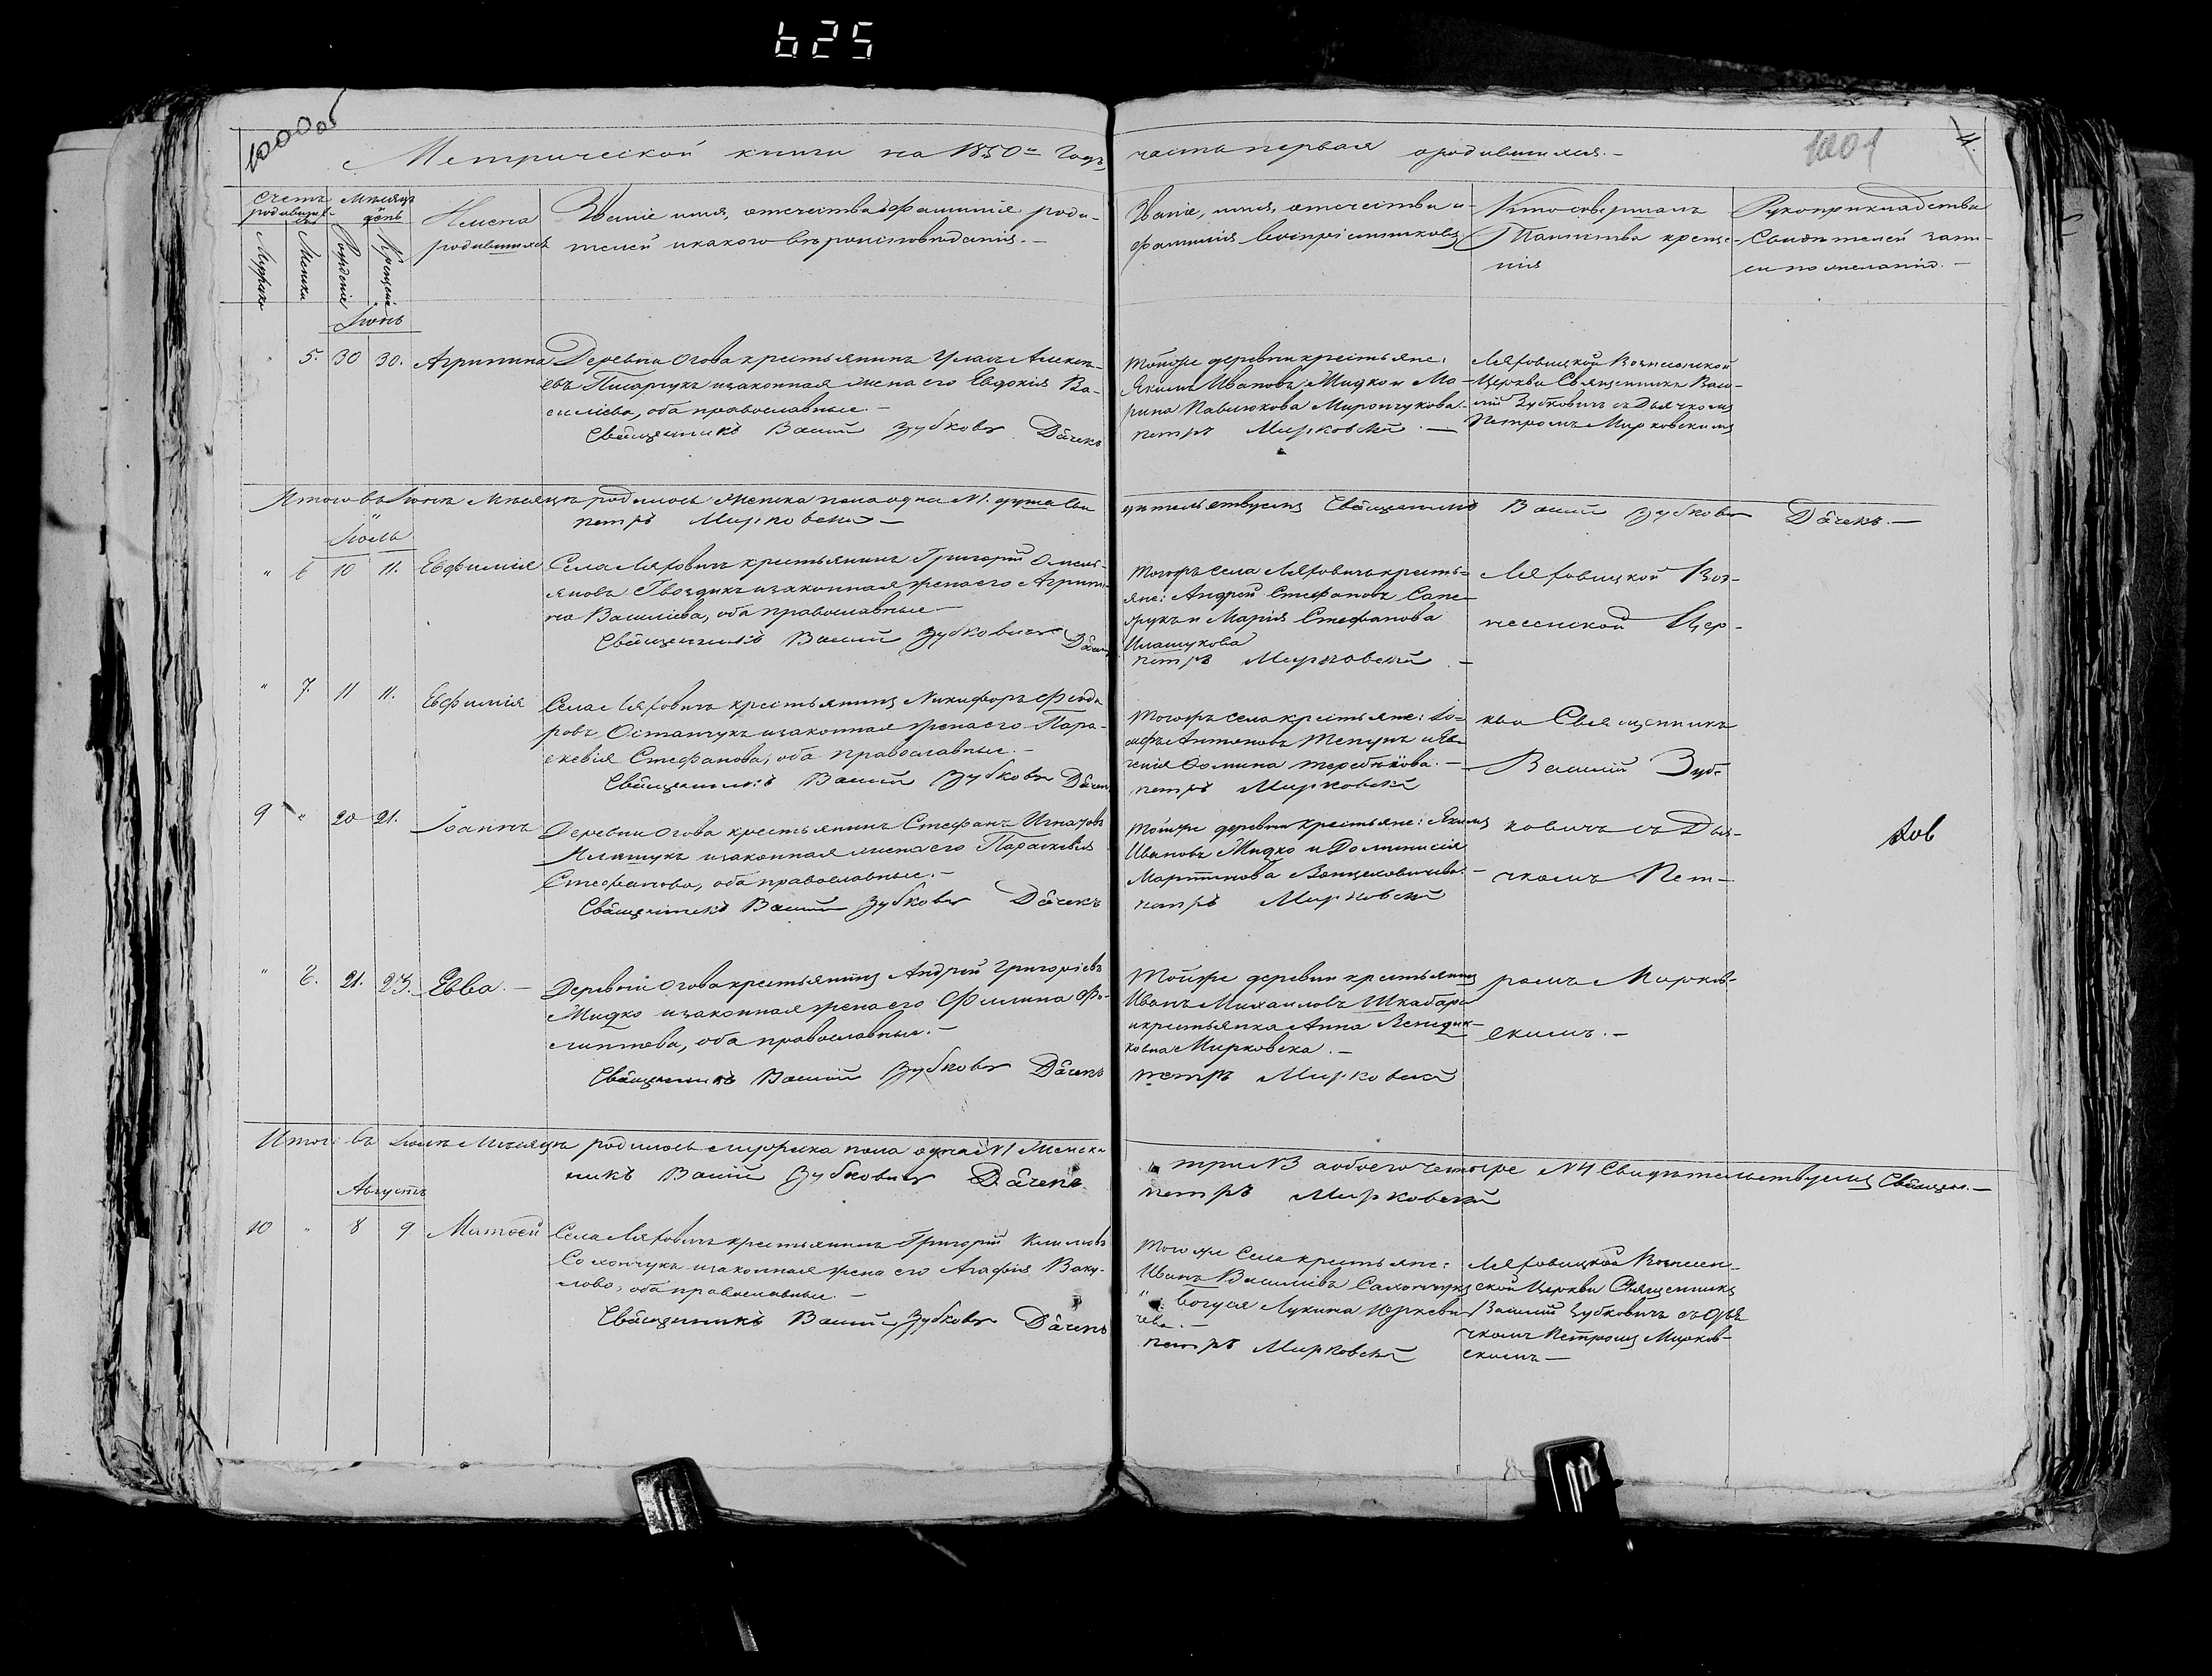 625
1000 об
1001
Метрической книги на 1850й Годъ
часть первая о родившихся. —
Счетъ родившихся
Мужска
Женска
Мѣсяцъ день
Рожденія
Крещенія
Имена
родившихся
Званіе имя, отечество и фамилія роди-
телей и какого вѣроисповѣданія. —
Званіе, имя, отечество и
фамилія воспріемниковъ
Кто совершалъ
Таинство креще-
нія
Рукоприкладство
Свидѣтелей запи-
си по желанію. —
Іюнь
5. 30 30. Агрипина
Деревни Огова крестьянинъ Уласъ Алексѣ-
евъ Писарчукъ и законная жена его Евдокія Ва-
силіева, оба православные. —
Священникъ Василій Зубковичъ Дьячекъ
Тойже деревни крестьяне:
Якимъ Ивановъ Мидко и Ма-
рина Павлюкова Мирончукова. —
Петръ Мирковскій. —
Ляховицкой Вознесенской
Церкви Священникъ Васи-
лій Зубковичъ съ Дьячкомъ
Петромъ Мирковскимъ
Итого въ Іюнѣ Мѣсяцѣ родилось женска пола одна №1. душа Сви
дѣтельствуемъ Священникъ Василій Зубковичъ Дьячекъ. —
Петръ Мирковскій —
Іюль
" 6 10 11. Евфимія
Села Ляховичъ крестьянинъ Григорій Омель-
яновъ Гвоздикъ и законная жена его Агрипи-
на Василіева, оба православные —
Священникъ Василій Зубковичъ Дьячекъ
Тогожъ села Ляховичъ крестья-
яне: Андрей Стефановъ Сапе-
жукъ и Марія Стефанова
Илашукова
Петръ Мирковскій. —
Ляховицкой Воз-
несенской Цер-
" 7. 11 11. Евфимія
Села Ляховичъ крестьянинъ Никифоръ Фіодо
ровъ Остапчукъ и законная жена его Пара-
скевія Стефанова, оба православные. —
Священникъ Василій Зубковичъ Дьячекъ
Тогожъ села крестьяне: Іо-
сифъ Антоновъ и Ев-
генія Фомина —
Петръ Мирковскій
кви Священникъ
Василій Зуб-
9 " 20 21. Іоаннъ
Деревни Огова крестьянинъ Стефанъ Игнатовъ
и законная жена его Параскевія
Стефанова, оба православные. —
Священникъ Василій Зубковичъ Дьячекъ
Тойже деревни крестьяне: Якимъ
Ивановъ Мидко и Доминикія
Мартинова —
Петръ Мирковскій
ковичъ съ Дья-
чкомъ Пет-
" 8. 21. 23. Евва. —
Деревни Огова крестьянинъ Андрей Григоріевъ
Мидко и законная жена его Филипа Фи-
липпова, оба православные. —
Священникъ Василій Зубковичъ Дьячекъ
Тойже деревни крестьянинъ
Иванъ Михаиловъ Шкабара
и крестьянка Анна Венедик-
ковна Мирковска. —
Петръ Мирковскій
ромъ Мирков-
скимъ. —
Итого въ Іюлѣ Мѣсяцѣ родилось мужеска пола одна №1 Женска
три №3 а обоего четыре №4 Свидѣтельствуемъ Священ. —
никъ Василій Зубковичъ Дьячекъ
Петръ Мирковскій
Августъ
10 " 8 9 Матѳей
Села Ляховичъ крестьянинъ Григорій Климовъ
Сахончукъ и законная жена его Агафія Ваку-
лова, оба православные. —
Священникъ Василій Зубковичъ Дьячекъ
Тогоже села крестьяне:
Иванъ Василіевъ Сахончукъ
Лукина Юркеви-
чева. —
Петръ Мирковскій
Ляховицкой Вознесен-
ской Церкви Священникъ
Василій Зубковичъ съ Дья
чкомъ Петромъ Мирков-
скимъ —